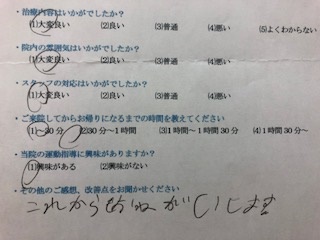 ・治療内容はいかがでしたか？
(1)大変良い (2)良い (3)普通 (4)悪い (5)よくわからない
・院内の雰囲気はいかがでしたか？
(1)大変良い (2)良い (3)普通 (4)悪い
・スタッフの対応はいかがでしたか？
(1)大変良い (2)良い (3)普通 (4)悪い
・ご来院してからお帰りになるまでの時間を教えてください
(1)～30分 (2)30分～1時間 (3)1時間～1時間30分 (4)1時間30分～
・当院の運動指導に興味がありますか？
(1)興味がある (2)興味がない
・その他のご感想、改善点をお聞かせください
これからお願いします